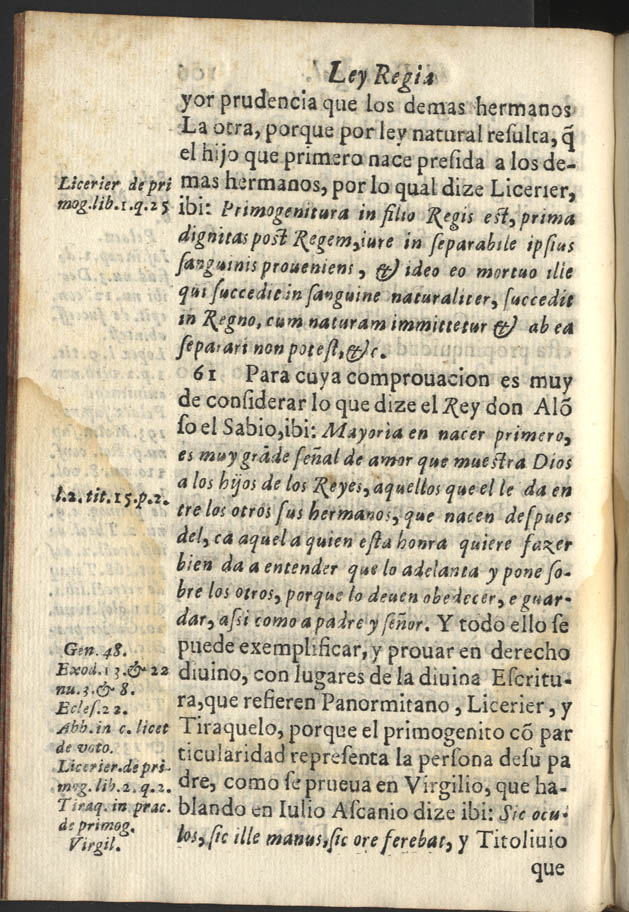 Ley Regia
yor prudencia que los demas hermanos
La otra, porque por ley natural resulta, q̃
el hijo que primero nace presida a los de-
mas hermanos, por lo qual dize Licerier,
ibi: Primogenitura in filio Regis est, prima
dignitas post Regem, iure in separabile ipsius
sanguinis proueniens, & ideo eo mortuo ille
qui succedit in sanguine naturaliter, succedit
in Regno, cum naturam immittetur & ab ea
separari non potest, &c.
61 Para cuya comprouacion es muy
de considerar lo que dize el Rey don Alõ
so el Sabio, ibi: Mayoria en nacer primero,
es muy grãde señal de amor que muestra Dios
a los hijos de los Reyes, aquellos que el le da en
tre los otros sus hermanos, que nacen despues
del, ca aquel a quien esta honra quiere fazer
bien da a entender que lo adelanta y pone so-
bre los otros, porque lo deuen obedecer, e guar-
dar, assi como a padre y señor. Y todo ello se
puede exemplificar, y prouar en derecho
diuino, con lugares de la diuina Escritu-
ra, que refieren Panormitano, Licerier, y
Tiraquelo, porque el primogenito cõ par
ticularidad representa la persona desu pa
dre, como se prueua en Virgilio, que ha-
blando en Iulio Ascanio dize ibi: Sic ocu-
los, sic ille manus, sic ore ferebat, y Titoliuio
que
Licerier de pri
mog. lib. 1. q. 25
l. 2. tit. 15. p. 2.
Gen. 48.
Exod. 13. & 22
nu. 3. & 8.
Ecles. 22.
Abb. in c. licet
de voto.
Licerier. de pri-
mog. lib. 2. q. 2.
Tiraq. in prac.
de primog.
Virgil.